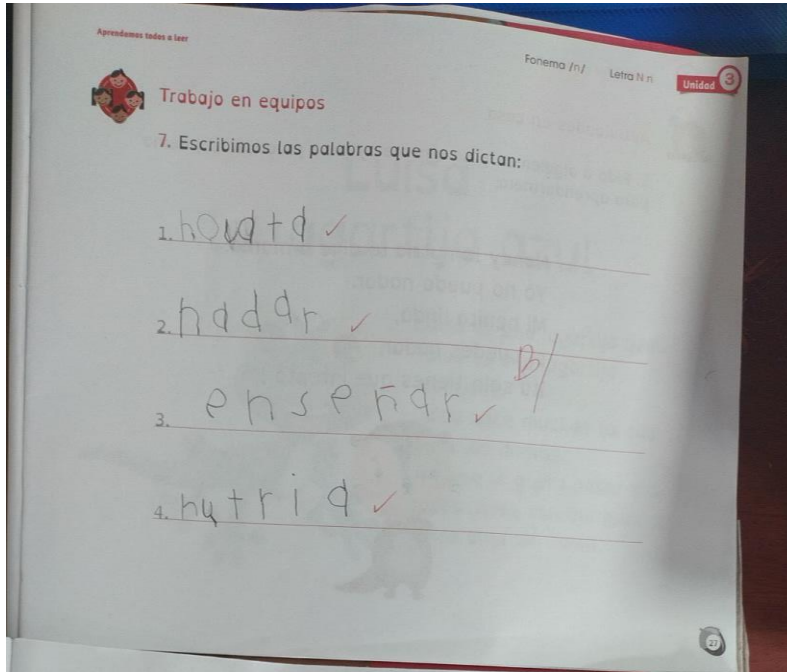 Aprendamos todos a leer
Fonema /n/ Letra N n Unidad 3
Trabajo en equipos
7. Escribimos las palabras que nos dictan:
1.
2. nadar
B/
3. enseñar
4. nutria
27